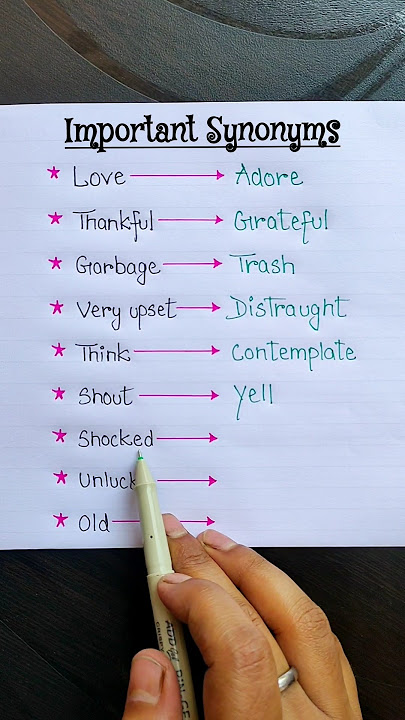 Important Synonyms
* Love → Adore
* Thankful → Grateful
* Garbage → Trash
* Very upset → Distraught
* Think → Contemplate
* Shout → Yell
* Shocked →
* Unluck →
* Old →